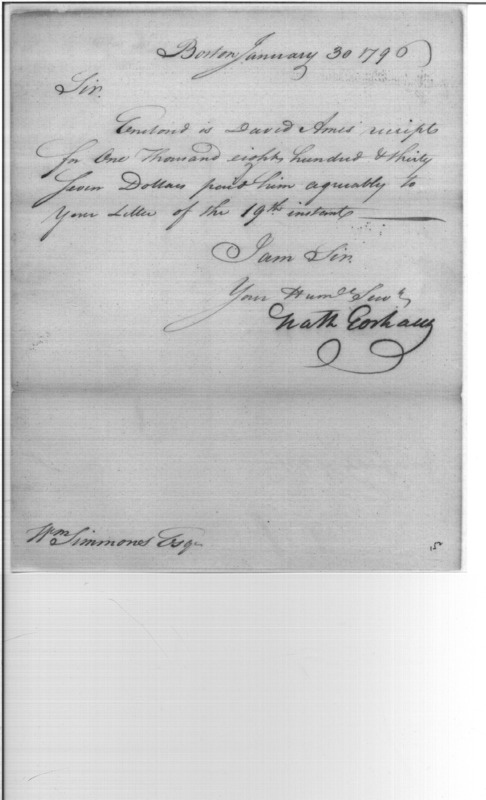 Boston January 30 1796
Sir.
Enclosed is David Ames' receipt
for One Thousand eighty hundred & thirty
Seven Dollars paid him agreeably to
Your Letter of the 19th instant
I am Sir.
Your Humle Servt
Nath Gorham
Wm Simmones Esqr